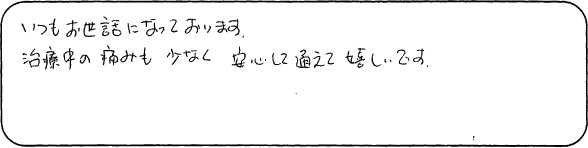 いつもお世話になっております.
治療中の痛みも 少なく 安心して通えて嬉しいです.